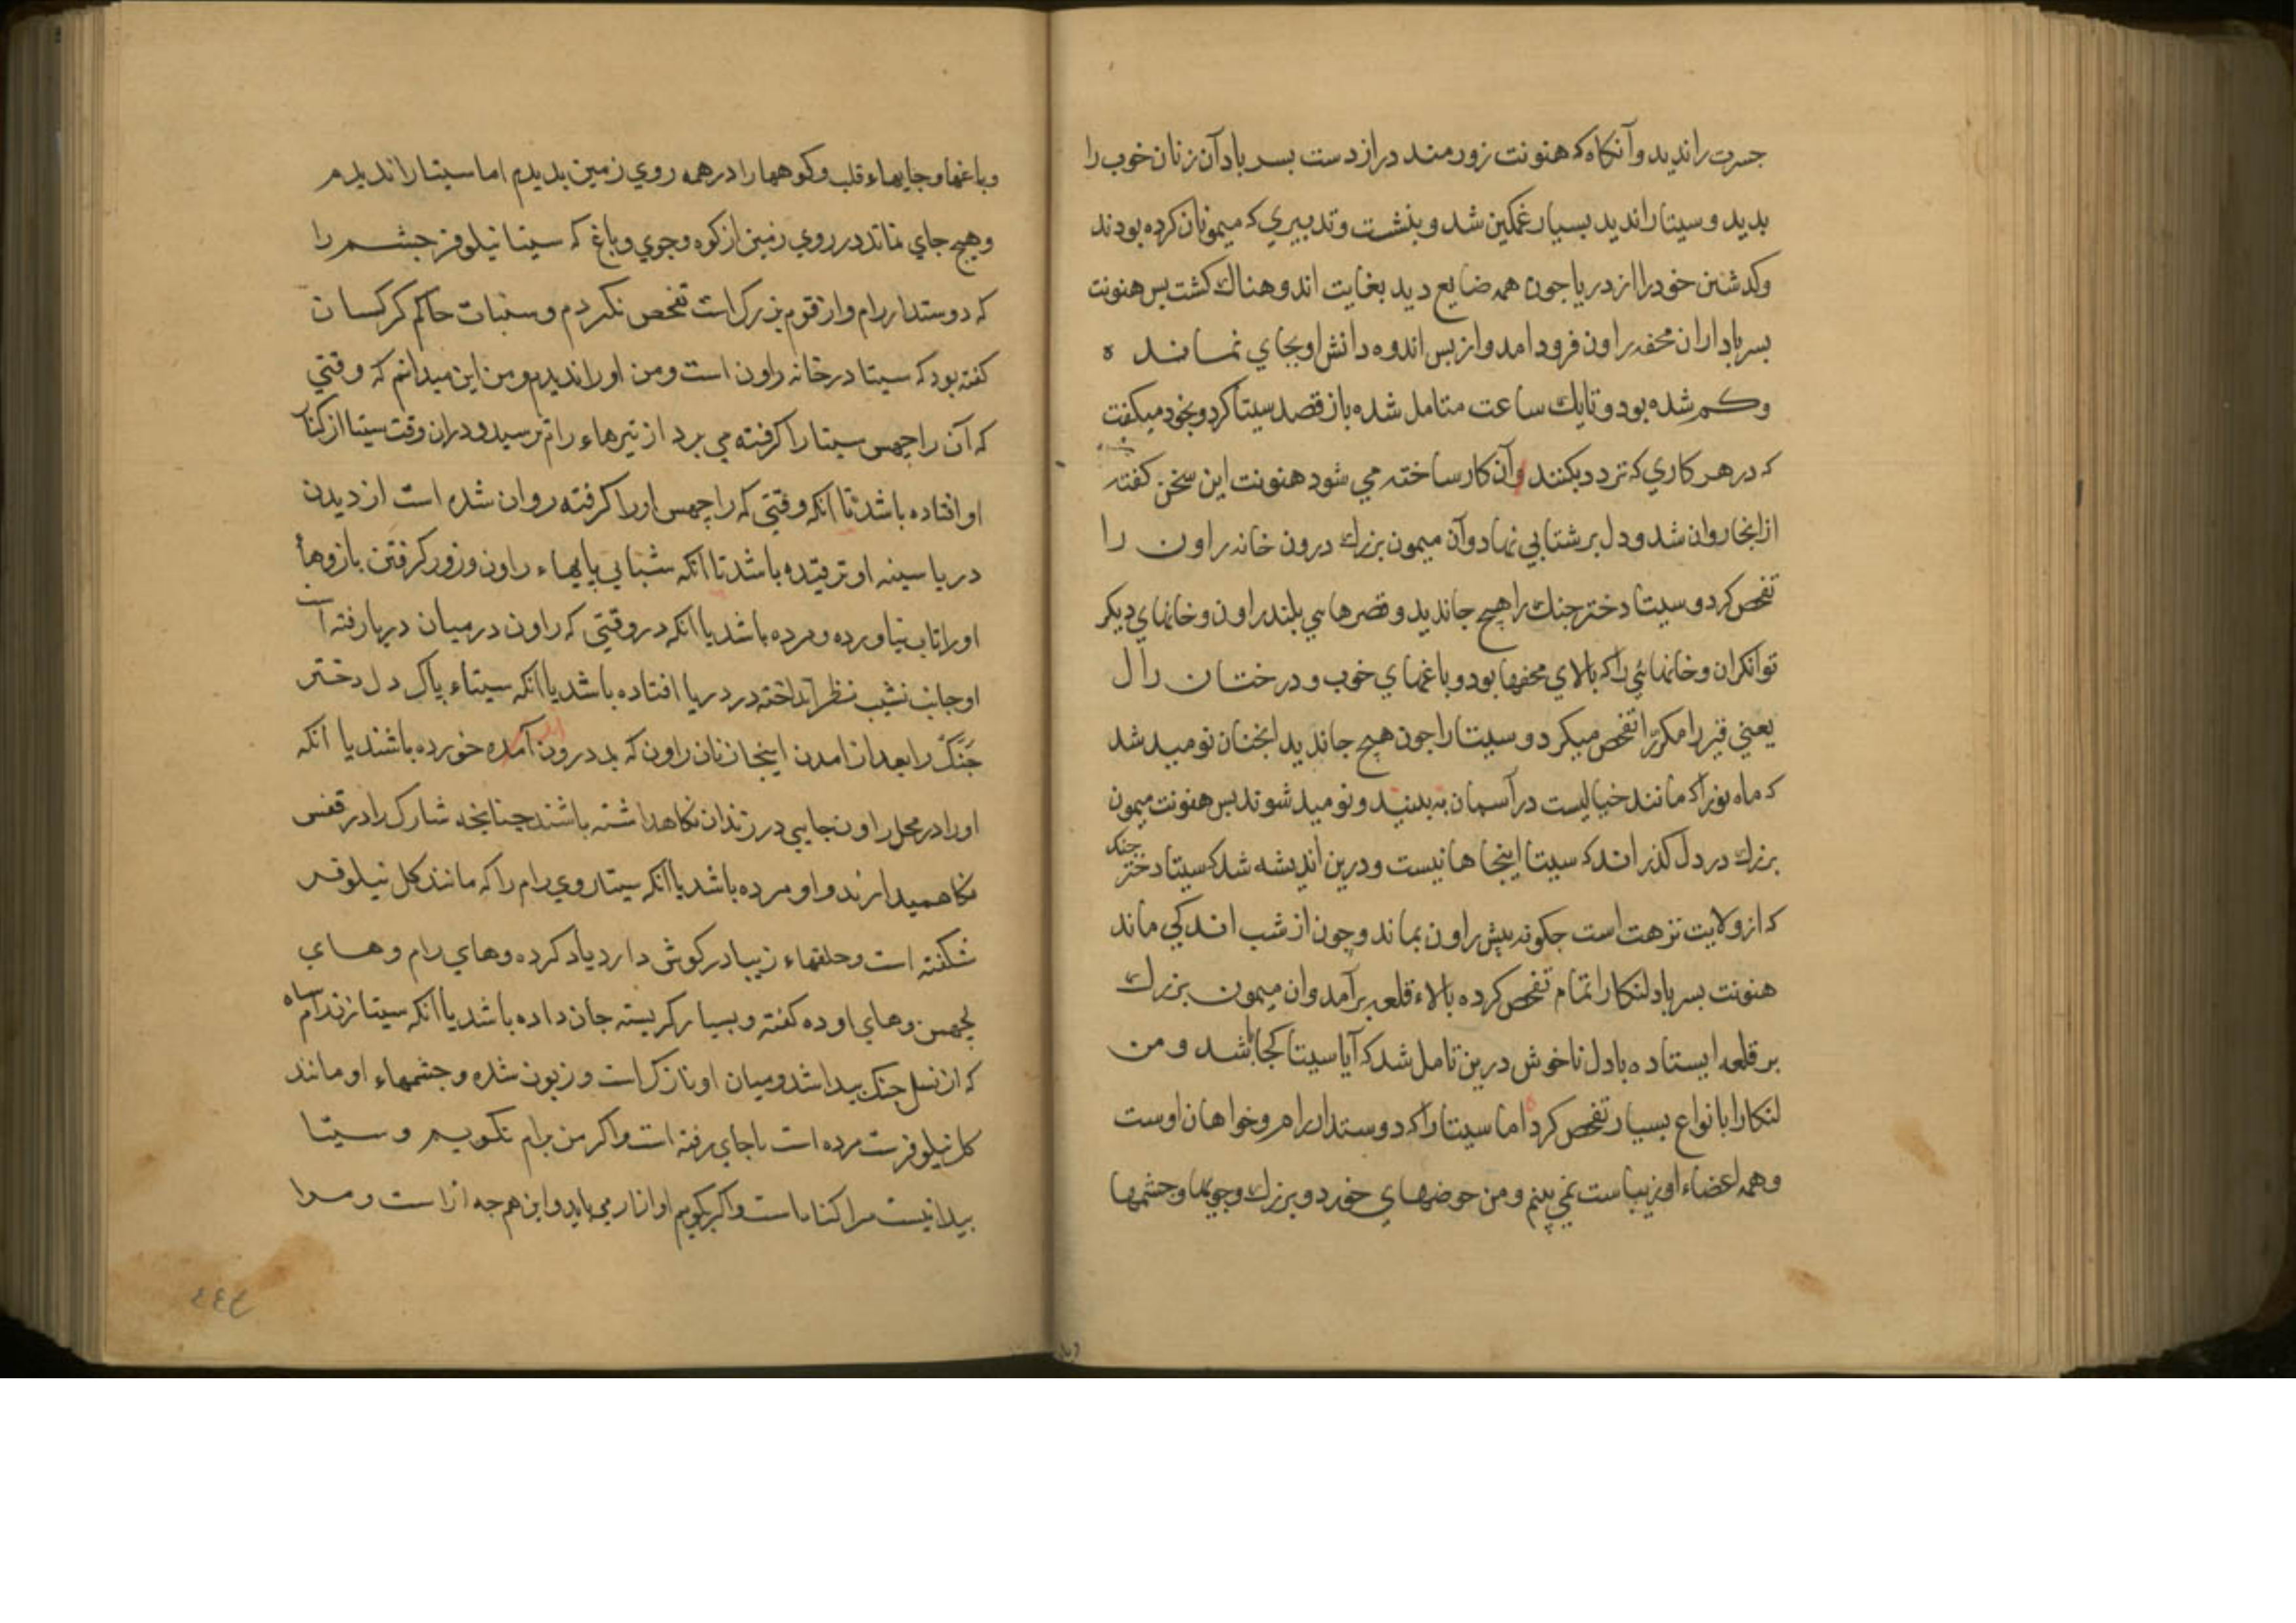 جسرت را ندید و آنکاه که هنونت زورمند دراز دست بسر باد آن زنان خوب را
بدید و سیتا را ندید بسیار غمکین شد و بنشست و تدبیری که میمونان کرده بودند
وکدشتن خود را از دریا جون همه ضایع دید بغایت اندوهناك کشت بس هنونت
بسر باد ازان محفه راون فرود امد و از بس اندوه دانش او بجای نماند ه
وکم شده بود و تا یك ساعت متامل شده باز قصد سیتا کرد و بخود میکفت
که در هر کاری که تردد بکنند وآن کار ساخته می شود هنونت این سخن کفته
از انجا روان شد و دل بر شتابی نهاد و آن میمون بزرك درون خانه راون را
تفحص کرد و سیتا دختر جنك را هیچ جا ندید و قصرهایی بلند راون و خانهای دیکر
توانکران و خانهائی را که بالای محفها بود و باغهای خوب و درختان را ل
یعنی قیر را مکررا تفحص میکرد و سیتا را جون هیچ جا ندید انجنان نومید شد
که ماه نو را که مانند خیالیست در آسمان نه بینند و نومید شوند بس هنونت میمون
بزرك در دل کذراند که سیتا اینجا ها نیست و درین اندیشه شد که سیتا دختر جنك
که از ولایت تزهت است جکونه پیش راون بماند و چون از شب اندکی ماند
هنونت بسر باد لنکا را تمام تفحص کرده بالاء قلعه برآمد وان میمون بزرك
بر قلعه ایستاده با دل ناخوش درین تامل شد که آیا سیتا کجا باشد و من
لنکا را بانواع بسیار تفحص کردم اما سیتا را که دوستدار رام و خواهان اوست
و همه اعضاء او زیباست نمی بینم و من حوضهای خورد و بزرك و جویها و جشمها
وباغها و جایهاء قلب و کوهها را در همه روی زمین بدیدم اما سیتا را ندیدم
و هیچ جای نماند در روی زمین از کوه و جوی و باغ که سیتا نیلوفر جشم را
که دوستدار رام و از قوم بزرك است تفحص نکردم و سنبات حاکم کرکسان
کفته بود که سیتا در خانه راون است و من او را ندیدم و من این میدانم که وقتی
که آن راجهس سیتا را کرفته می برد از تیرهاء رام ترسید و دران وقت سیتا از کنار
او افتاده باشد تا انکه وقتی که راچهس او را کرفته روان شده است از دیدن
دریا سینه او ترقیده باشد تا انکه شتابی پایهاء راون و زور کرفتن بازوهاء
او را تاب نیاورده و مرده باشد یا انکه در وقتی که راون در میان دریا رفته است
او جانب نشیب نظر انداخته در دریا افتاده باشد یا انکه سیتاء پاک دل دختر
جنك را بعد از امدن اینجا زنان راون که بد درون آمده خورده باشند یا انکه
او را در محل راون جایی در زندان نکاه داشته باشند جنانجه شارک را در قفس
نکاه میدارند و او مرده باشد یا انکه سیتا روی رام را که مانند کل نیلوفر
شکفته است و حلقهاء زیبا در کوش دارد یاد کرده و های رام و های
لچهمن و های اوده کفته و بسیار کریسته جان داده باشد یا انکه سیتا
که از نسل جنك پیدا شد و میان او نازك است و زبون شده و جشمهاء او مانند
کل نیلوفرست مرده است یا جای رفته است و اکر من برام نکویم و سیتا
پیدا نیست مرا کناه است و اکر بکویم او ازار می یابد و این هم جه
٤٤٤